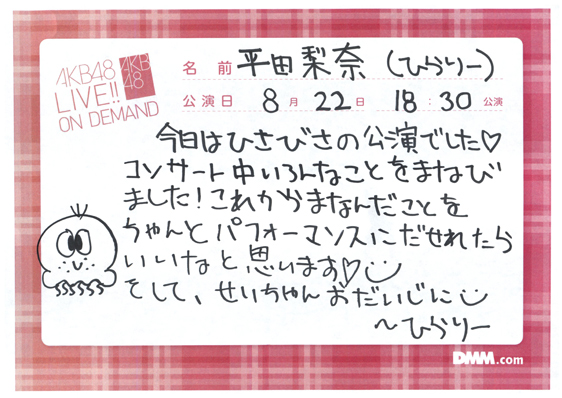 AKB48
LIVE!!
ON DEMAND
AKB
48
名前 平田梨奈（ひらりー）
公演日 8月22日 18:30公演
今日はひさびさの公演でした♡
コンサート中いろんなことをまなび
ました！これからまなんだことを
ちゃんとパフォーマンスにだせれたら
いいなと思います♡
そして、せいちゃんおだいじに
〜ひらりー
DMM.com